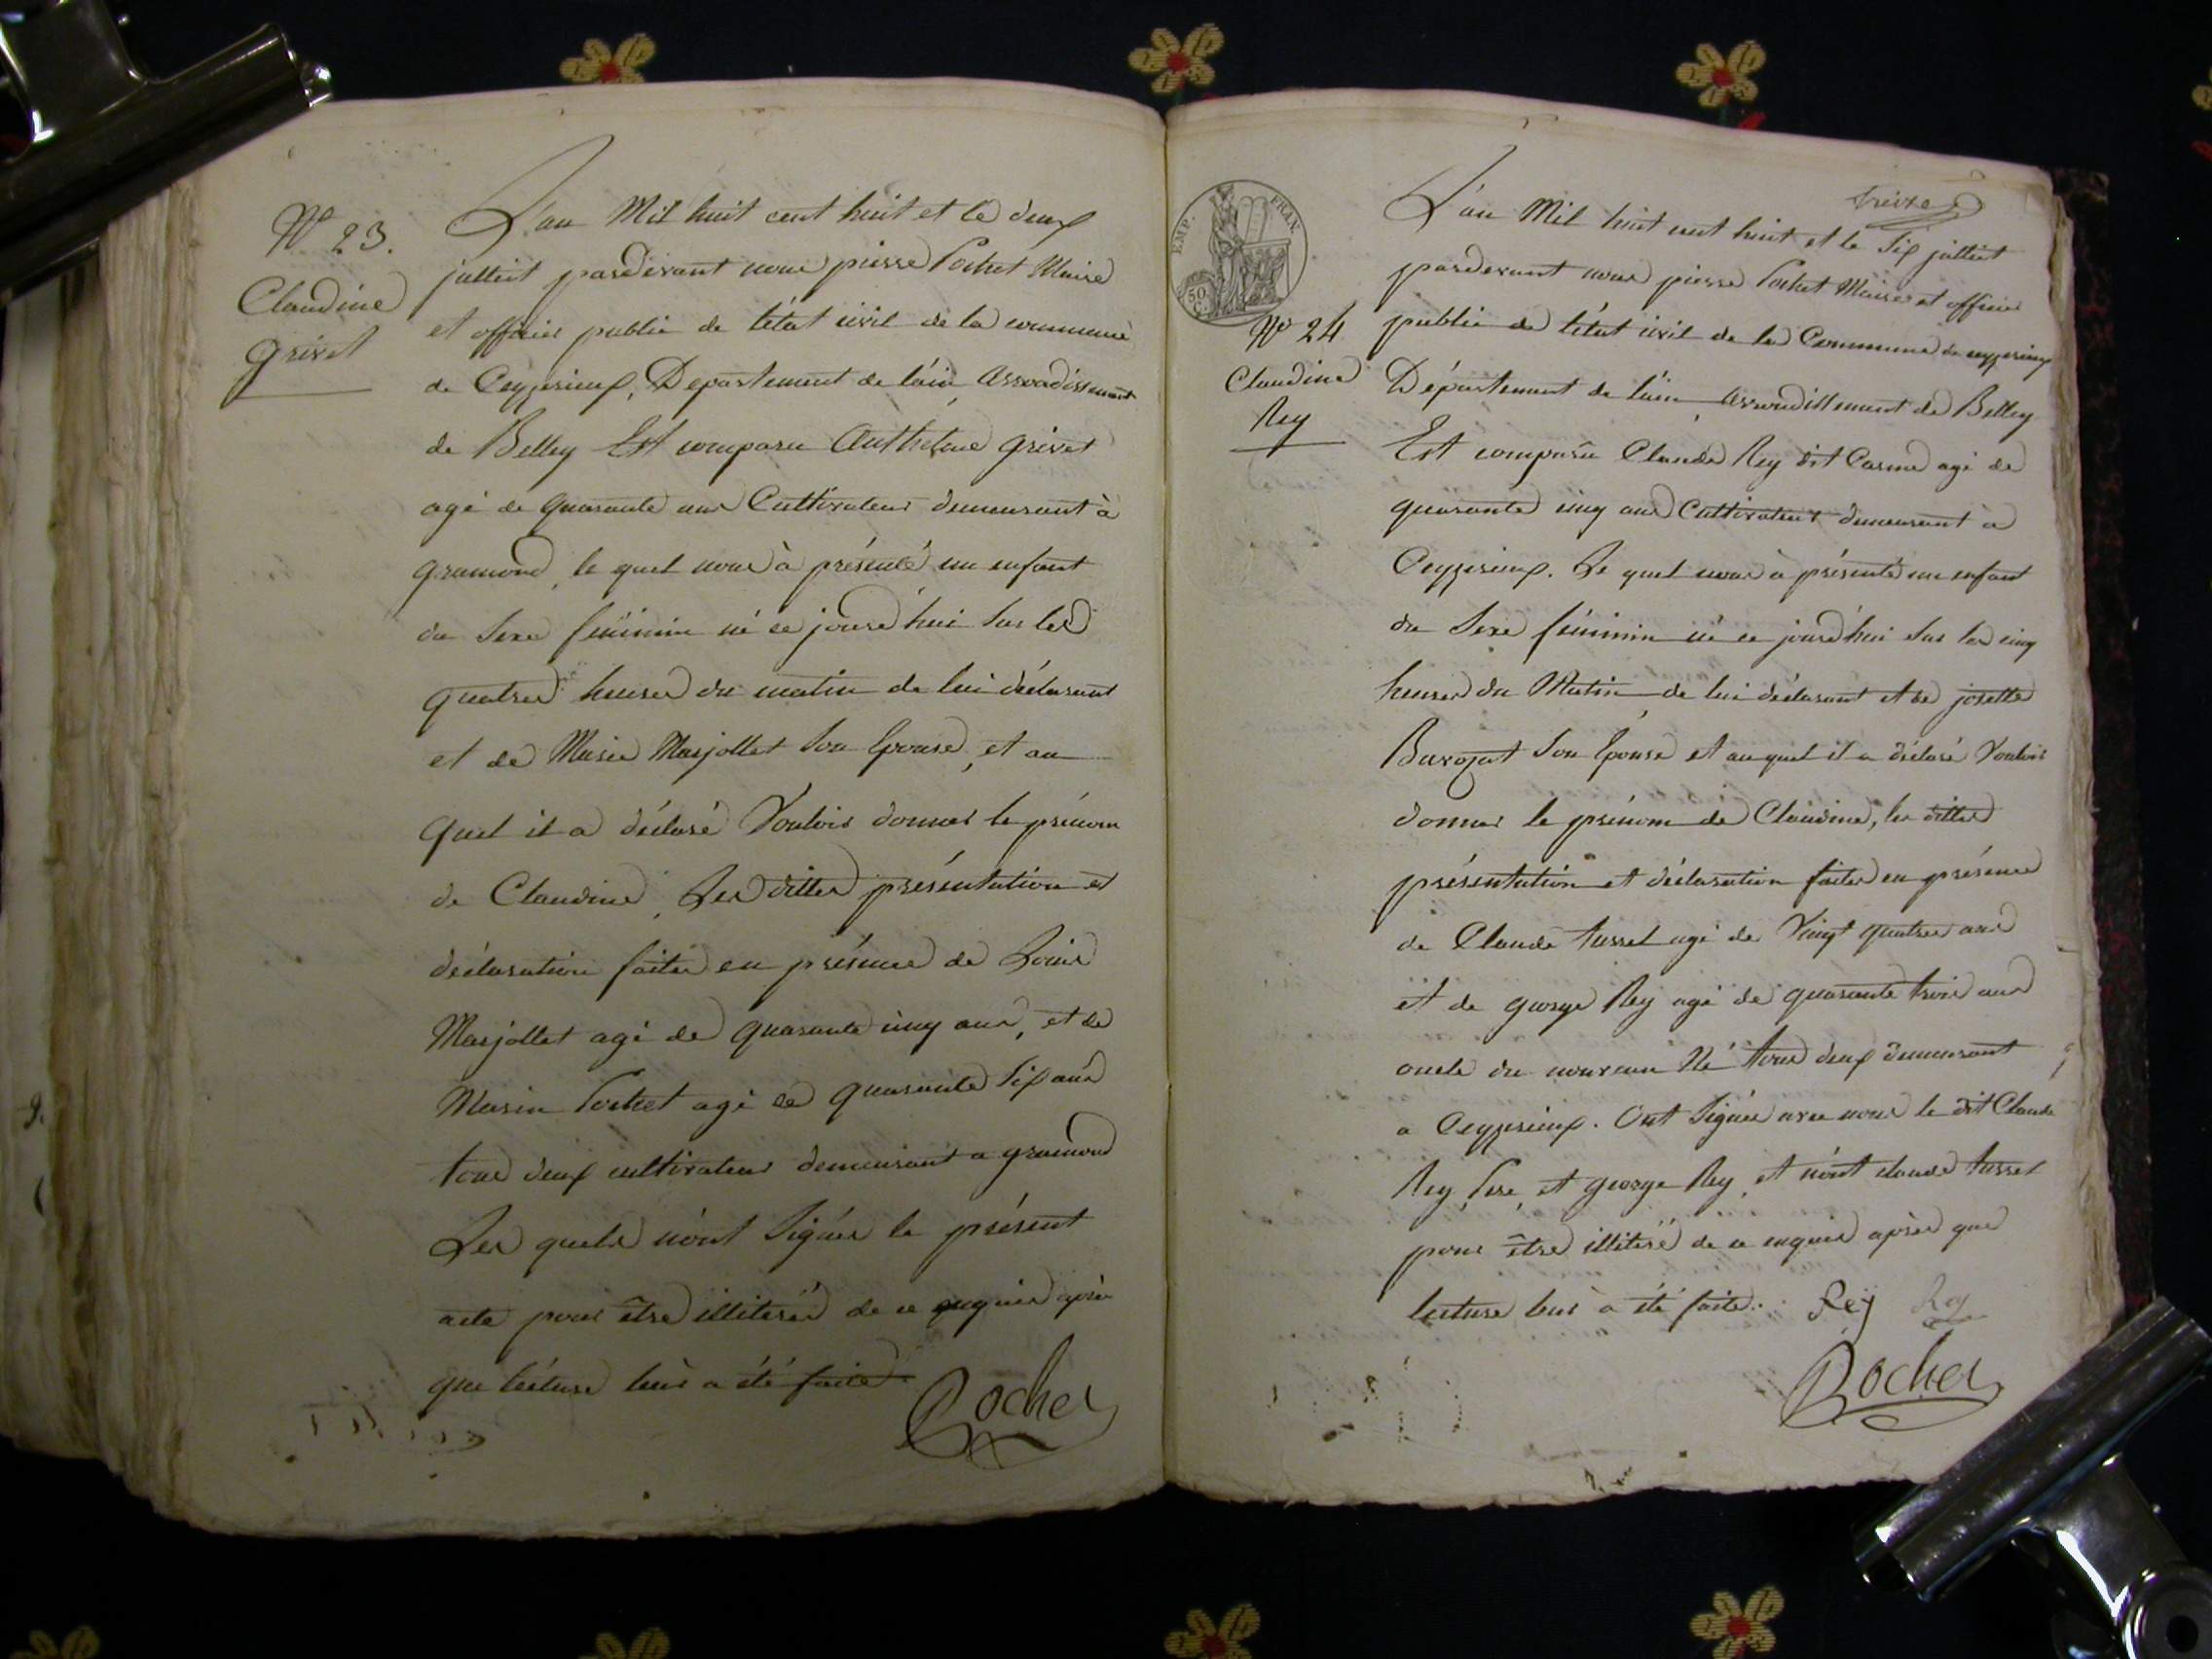 Nº 23.
Claudine
grivet
L'an Mil huit cent huit et le deux
julliet pardevant nous pierre Rochet Maire
et officier public de l'état civil de la commune
de Ceyzerieux, Departement de l'ain, Arrondissement
de Belley Est comparu Anthelme grivet
agé de quarante ans Cultivateur demeurant à
gramond, le quel nous à présenté un enfant
du Sexe féminin né ce jourd'hui Sur les
quatres heures du matin de lui déclarant
et de Marie Marjollet Son Epouse, et au
quel il a déclaré Vouloir donner le prénom
de Claudine, Les dittes présentation et
déclaration faites en présence de Louis
Marjollet agé de quarante cinq ans, et de
Marin Rochet agé de quarante Six ans
tous deux cultivateur demeurant a gramond
Les quels n'ont Signés le présent
acte pour être illiterés de ce enquis après
que lecture leur a été faite.
Rochet
treize
EMP. FRAN.
50 C.
Nº 24
Claudine
Rey
L'an Mil huit cent huit et le Six julliet
pardevant nous pierre Rochet Maire et officier
public de l'état civil de la Commune de ceyzerieux
Département de l'ain, Arrondissement de Belley
Est comparu Claude Rey dit Carme agé de
quarante cinq ans Cultivateur demeurant à
Ceyzerieux. Le quel nous à présenté un enfant
du Sexe féminin né ce jourd'hui Sur les cinq
heures du Matin de lui déclarant et de josette
Bavozat Son Epouse et au quel il a déclaré Vouloir
donner le prénom de Claudine, les dittes
présentation et déclaration faites en présence
de Claude tusset agé de Vingt quatres ans
et de george Rey agé de quarante trois ans
oncle du nouveau Né tous deux demeurant
a Ceyzerieux. Ont Signés avec nous le dit Claude
Rey Pere, et george Rey, et n'ont claude tusset
pour être illiteré de ce enquis après que
lecture leur à été faite.
Rey Rey
Rochet